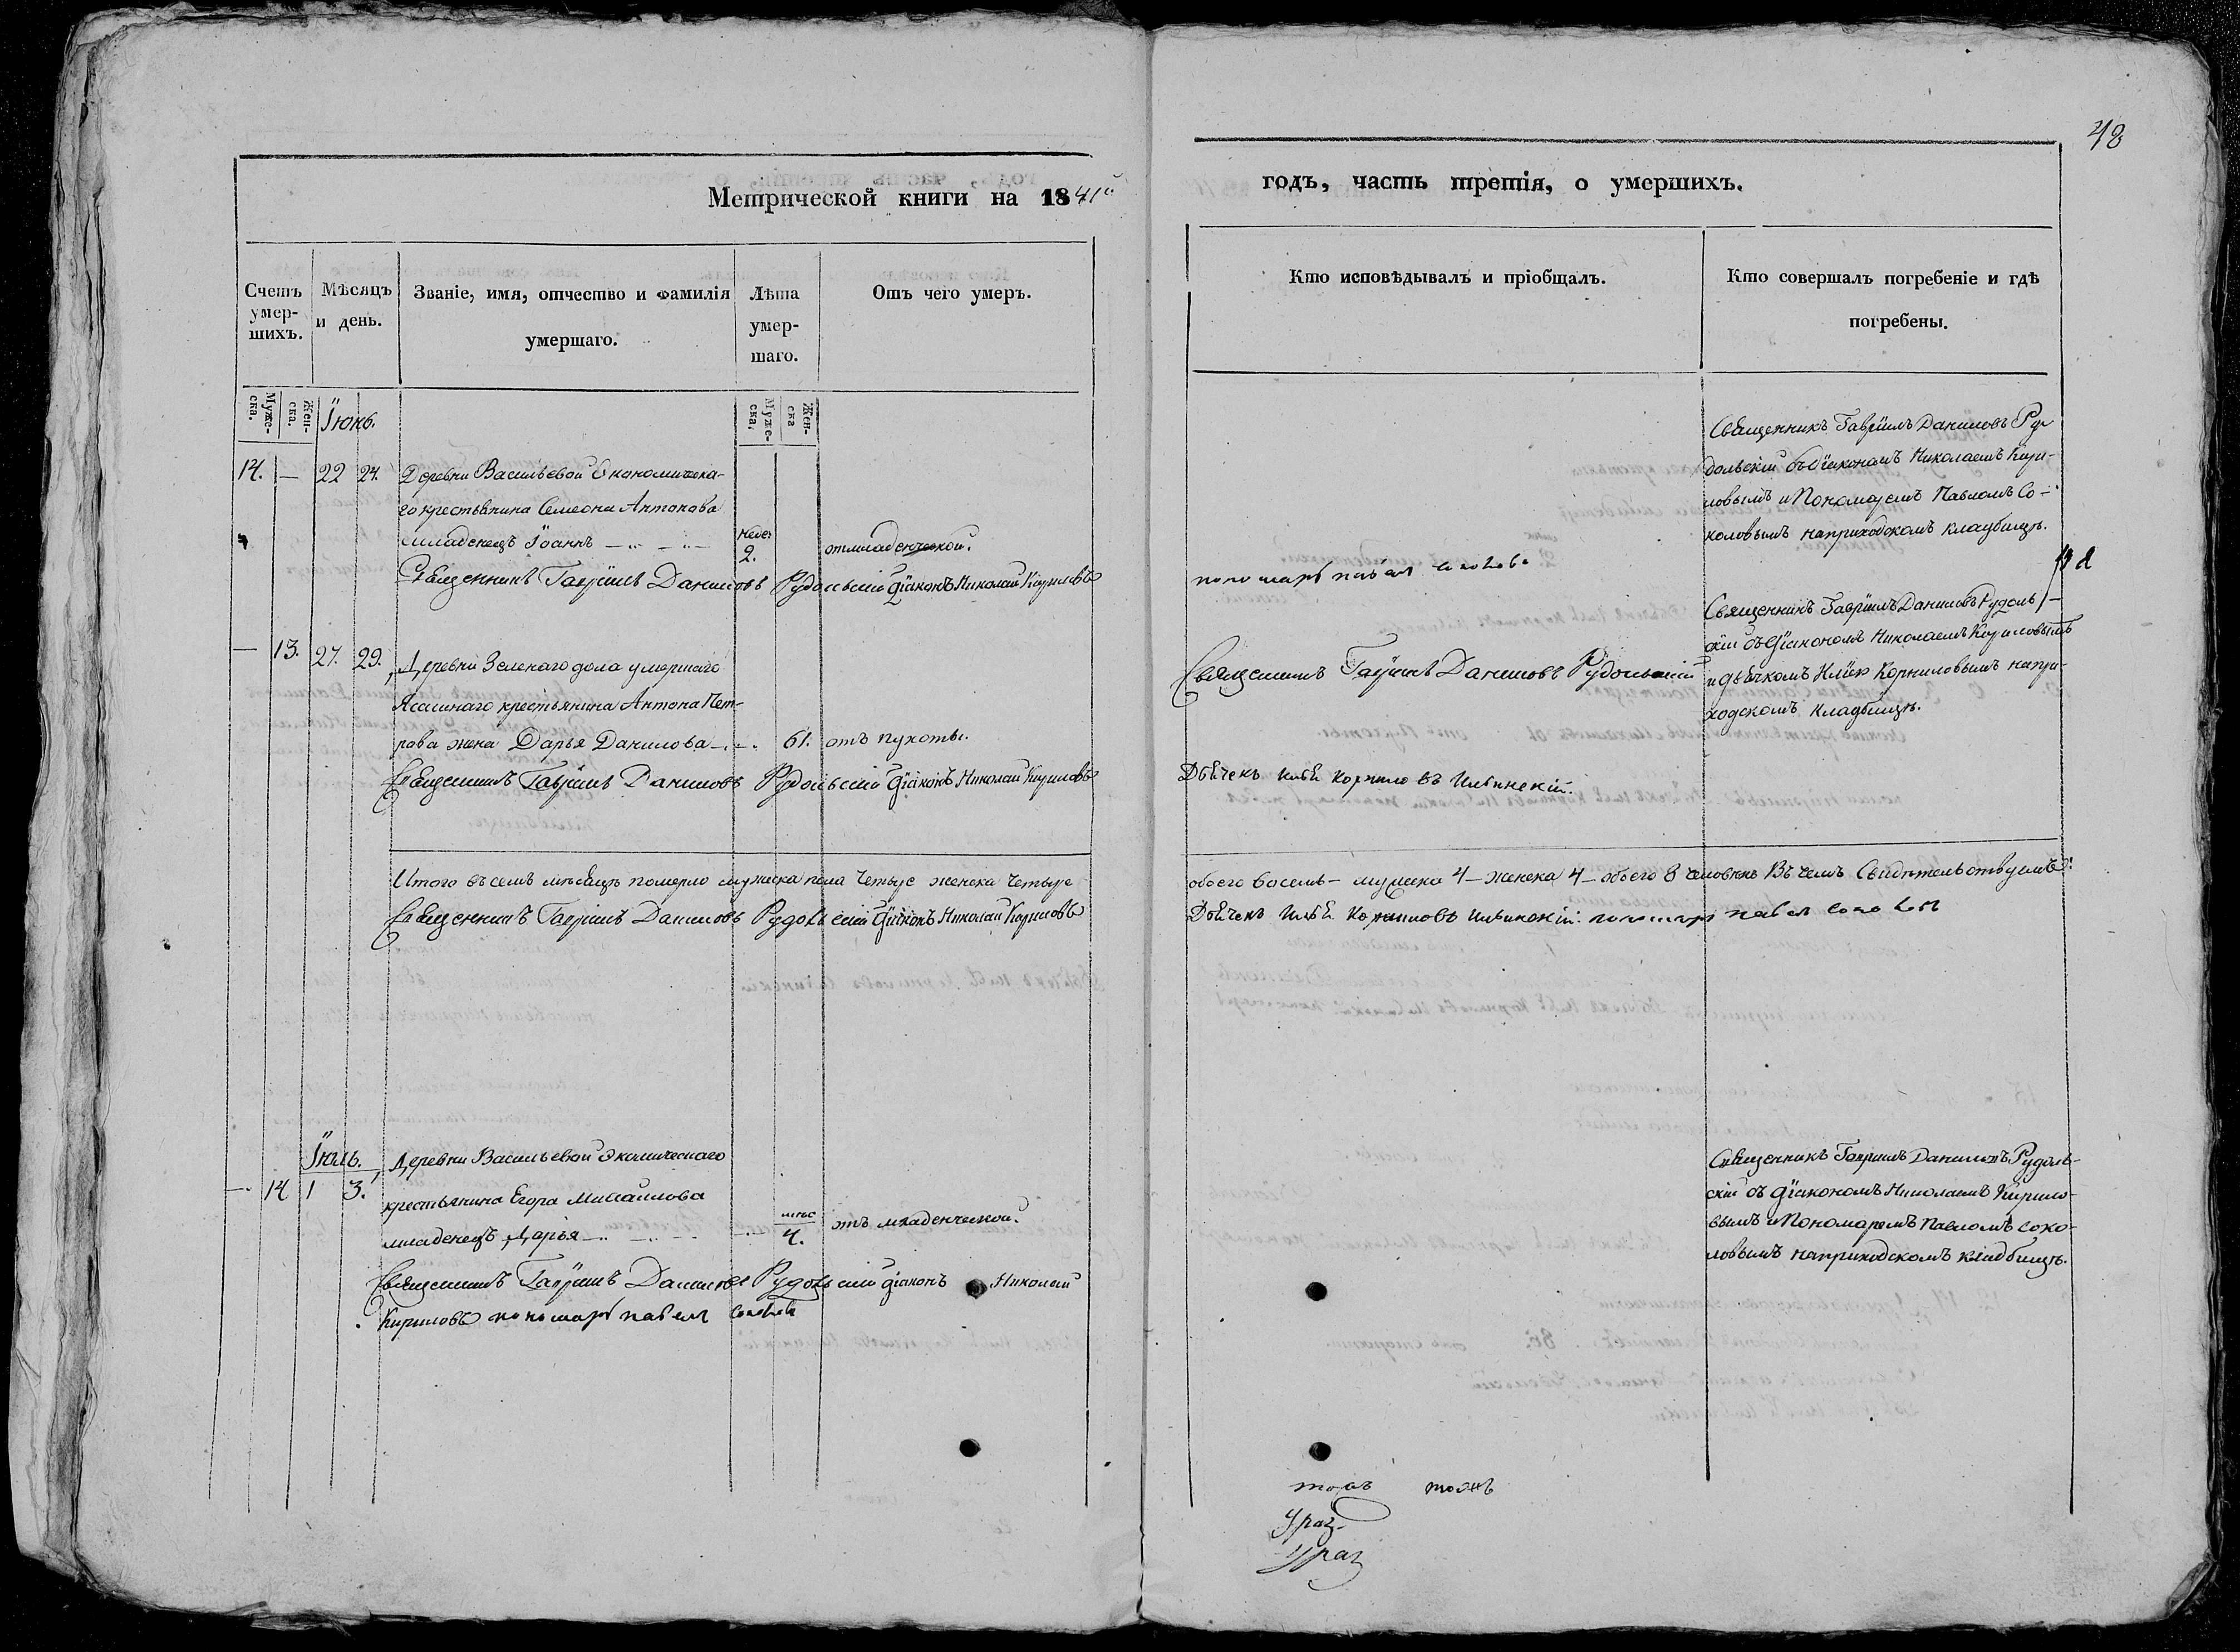 48
Метрической книги на 1841й
годъ, часть третія, о умершихъ.
Счетъ умер-шихъ.
Мѣсяцъ и день.
Званіе, имя, отчество и фамилія умершаго.
Лѣта умер-шаго.
Отъ чего умеръ.
Кто исповѣдывалъ и пріобщалъ.
Кто совершалъ погребеніе и гдѣ погребены.
Муже-ска.
Жен-ска.
Муже-ска.
Жен-ска
Іюнь.
14. — 22 24. Деревни Васильевой Экономическа-
го крестьянина Симеона Антонова
младенецъ Іоаннъ
недел 2. отмладенческой.
Священникъ Гавріилъ Даниловъ Рудольскій Діаконъ Николай Кириловъ
пономарь павел соколов
Священникъ Гавріилъ Даниловъ Ру-
дольскій съ Діакономъ Николаемъ Кири-
ловымъ и Пономаремъ Павломъ Со-
коловымъ наприходскомъ кладбищѣ.
— 13. 27. 29. Деревни Зеленаго дола умершаго
Ясашнаго крестьянина Антона Пет-
рова жена Дарья Данилова
61. отъ пухоты.
Священникъ Гавріилъ Даниловъ Рудольскій Діаконъ Николай Кириловъ
Священникъ Гавріилъ Даниловъ Рудольскій
Дьячекъ Илья Корнило въ Ильинскій.
Священникъ Гавріилъ Даниловъ Рудоль-
скій съ Діакономъ Николаемъ Кириловымъ
и дьячкомъ Ильею Корниловымъ напри-
ходскомъ кладбищѣ.
Итого въ семъ мѣсяцѣ померло мужеска пола четыре женска четыре
обоего восемь — мужеска 4 — женска 4 — обоего 8 человекъ Въ чемъ Свидѣтельствуемъ:
Священникъ Гавріилъ Даниловъ Рудольскій Діаконъ Николай Кириловъ
Дьячекъ Илья Корниловъ Ильинскій: пономарь павел соколов
Іюль.
— 14 1 3. Деревни Васильевой Экономическаго
крестьянина Егора Михайлова
младенецъ Дарья
мѣс 4. отъ младенческой.
Священникъ Гавріилъ Даниловъ Рудольскій діаконъ Николай
Кириловъ пономарь павел соколов
Священникъ Гавріилъ Даниловъ Рудоль-
скій съ діакономъ Николаемъ Кирило-
вымъ и Пономаремъ Павломъ Соко-
ловымъ наприходскомъ кладбищѣ.